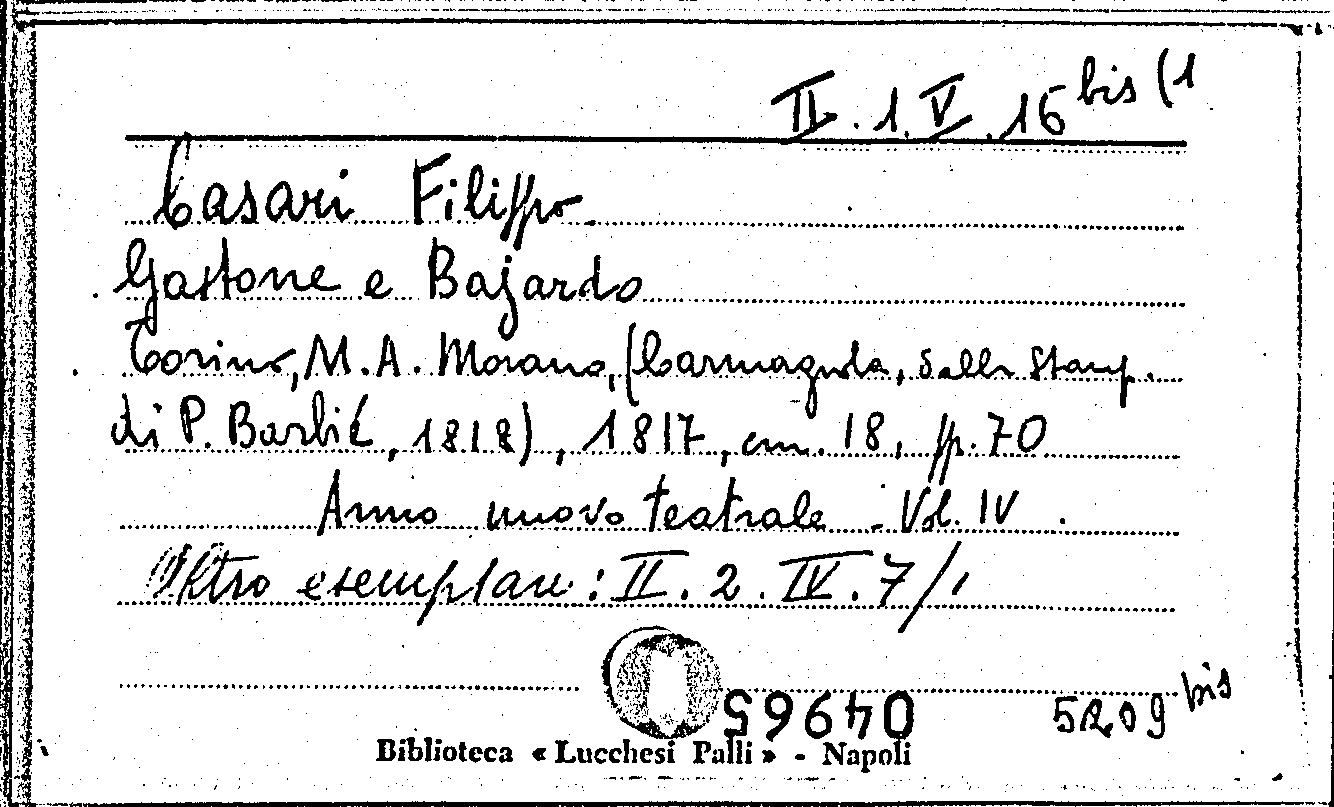 II.1.V.16 bis (1
Casari Filippo
Gastone e Bajardo
Torino, M.A. Morano, (Carmagnola, dalla Stamp.
di P. Barbié, 1818), 1817, cm. 18, pp. 70
Anno nuovo teatrale - Vol. IV.
Altro esemplare: II.2.IV.7/1
04965
5209 bis
Biblioteca « Lucchesi Palli » - Napoli